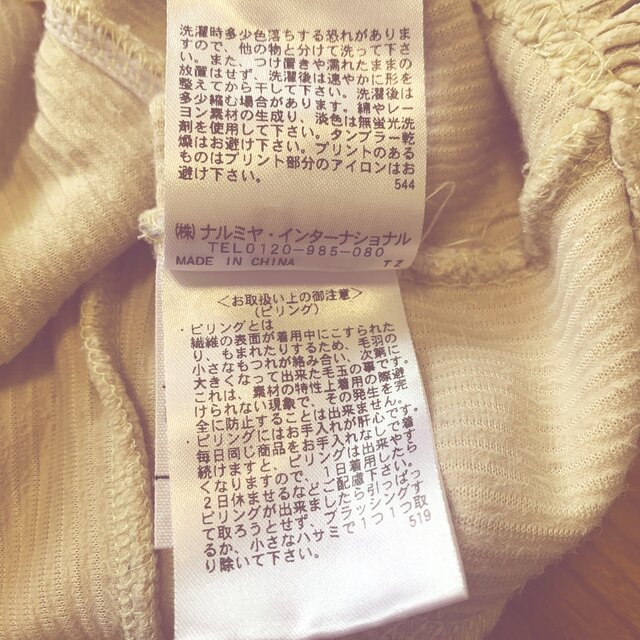 洗濯時多少色落ちする恐れがありま
すので、他の物と分けて洗って下さ
い。また、つけ置きや濡れたままの
放置はせず、洗濯後は速やかに形を
整えてから干して下さい。洗濯後は
多少縮む場合があります。綿やレー
ヨン素材の生成り、淡色は無蛍光洗
剤を使用して下さい。タンブラー乾
燥はお避け下さい。プリントのある
ものはプリント部分のアイロンはお
避け下さい。
544
㈱ナルミヤ・インターナショナル
TEL0120-985-080
MADE IN CHINA TZ
＜お取扱い上の御注意＞
（ピリング）
・ピリングとは
繊維の表面が着用中にこすられた
り、もまれたりするため、毛羽の
小さなもつれが絡み合い、次第に
大きくなって出来た毛玉の事です。
これは、素材の特性上着用の際避
けられない現象で、その発生を完
全に防止することは出来ません。
・ピリングにはお手入れが肝心です。
毎日同じ商品をお手入れなしで着
続けますと、ピリングは出来やす
くなりますので、１日着用したら
２日休ませるなどご配慮下さい。
ピリングが出来ましたら引っぱっ
て取ろうとせず、ブラッシングす
るか、小さなハサミで１つ１つ取
り除いて下さい。
519